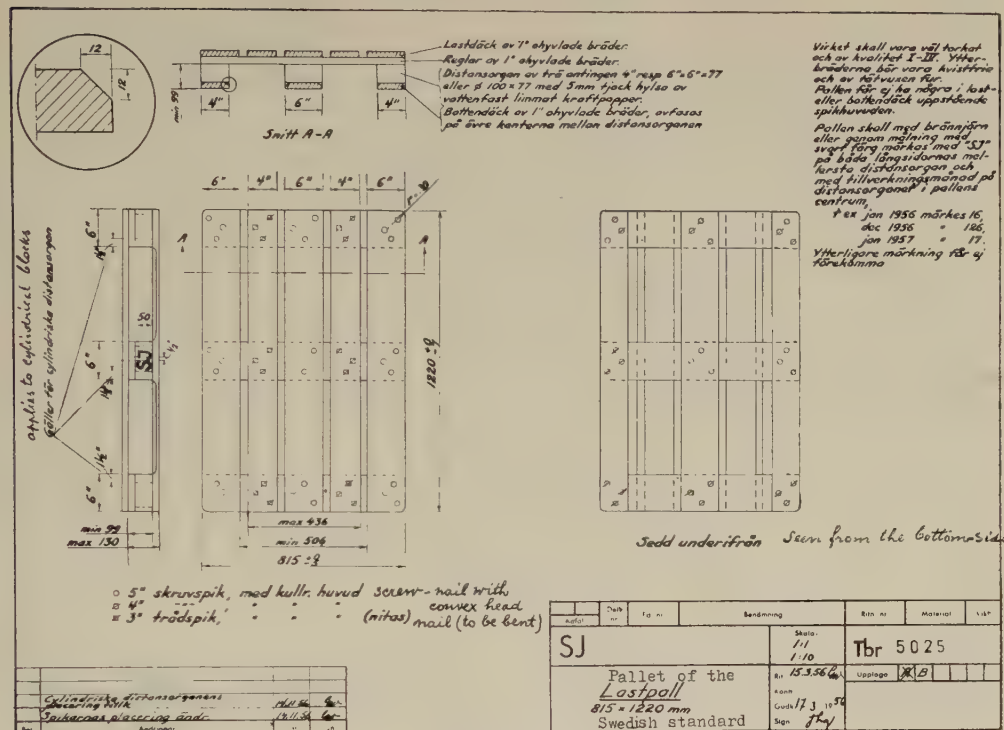 12
12
min 99
4"
6"
4"
Snitt A-A
Lastdäck av 1" ohyvlade bräder.
Reglar av 1" ohyvlade bräder.
Distansorgan av trä antingen 4" resp 6"×6"×77
eller ø 100×77 med 5mm tjock hylsa av
vattenfast limmat kraftpapper.
Bottendäck av 1" ohyvlade bräder, avfasas
på övre kanterna mellan distansorganen
Virket skall vara väl torkat
och av kvalitet I-III. Ytter-
bräderna bör vara kvistfria
och av tätvuxen fur.
Pallen får ej ha några i last-
eller bottendäck uppstående
spikhuvuden.
Pallen skall med brännjärn
eller genom målning med
svart färg märkas med "SJ"
på båda långsidornas mel-
lersta distansorgan och
med tillverkningsmånad på
distansorganet i pallens
centrum,
t ex jan 1956 märkes 16,
dec 1956 " 126,
jan 1957 " 17.
Ytterligare märkning får ej
förekomma
6" 4" 6" 4" 6"
A
A
applies to cylindrical blocks
Gäller för cylindriska distansorgan
6"
1½"
50
SJ
6"
1½"
1½"
6"
min 99
max 130
1220
max 436
min 504
815
Sedd underifrån Seen from the bottom-side
5" skruvspik, med kullr. huvud screw-nail with
4" " " " convex head
3" trådspik, " " " (nitas) nail (to be bent)
Cylindriska distansorganens
placering
14.11.56
Spikarnas placering ändr.
14.11.56
Benämning
Ritn nr
Material
SJ
Skala:
1:1
1:10
Tbr 5025
Pallet of the
Lastpall
815 × 1220 mm
Swedish standard
Rit 15.3.56
Upplaga B
Godk 17 3 1956
Sign